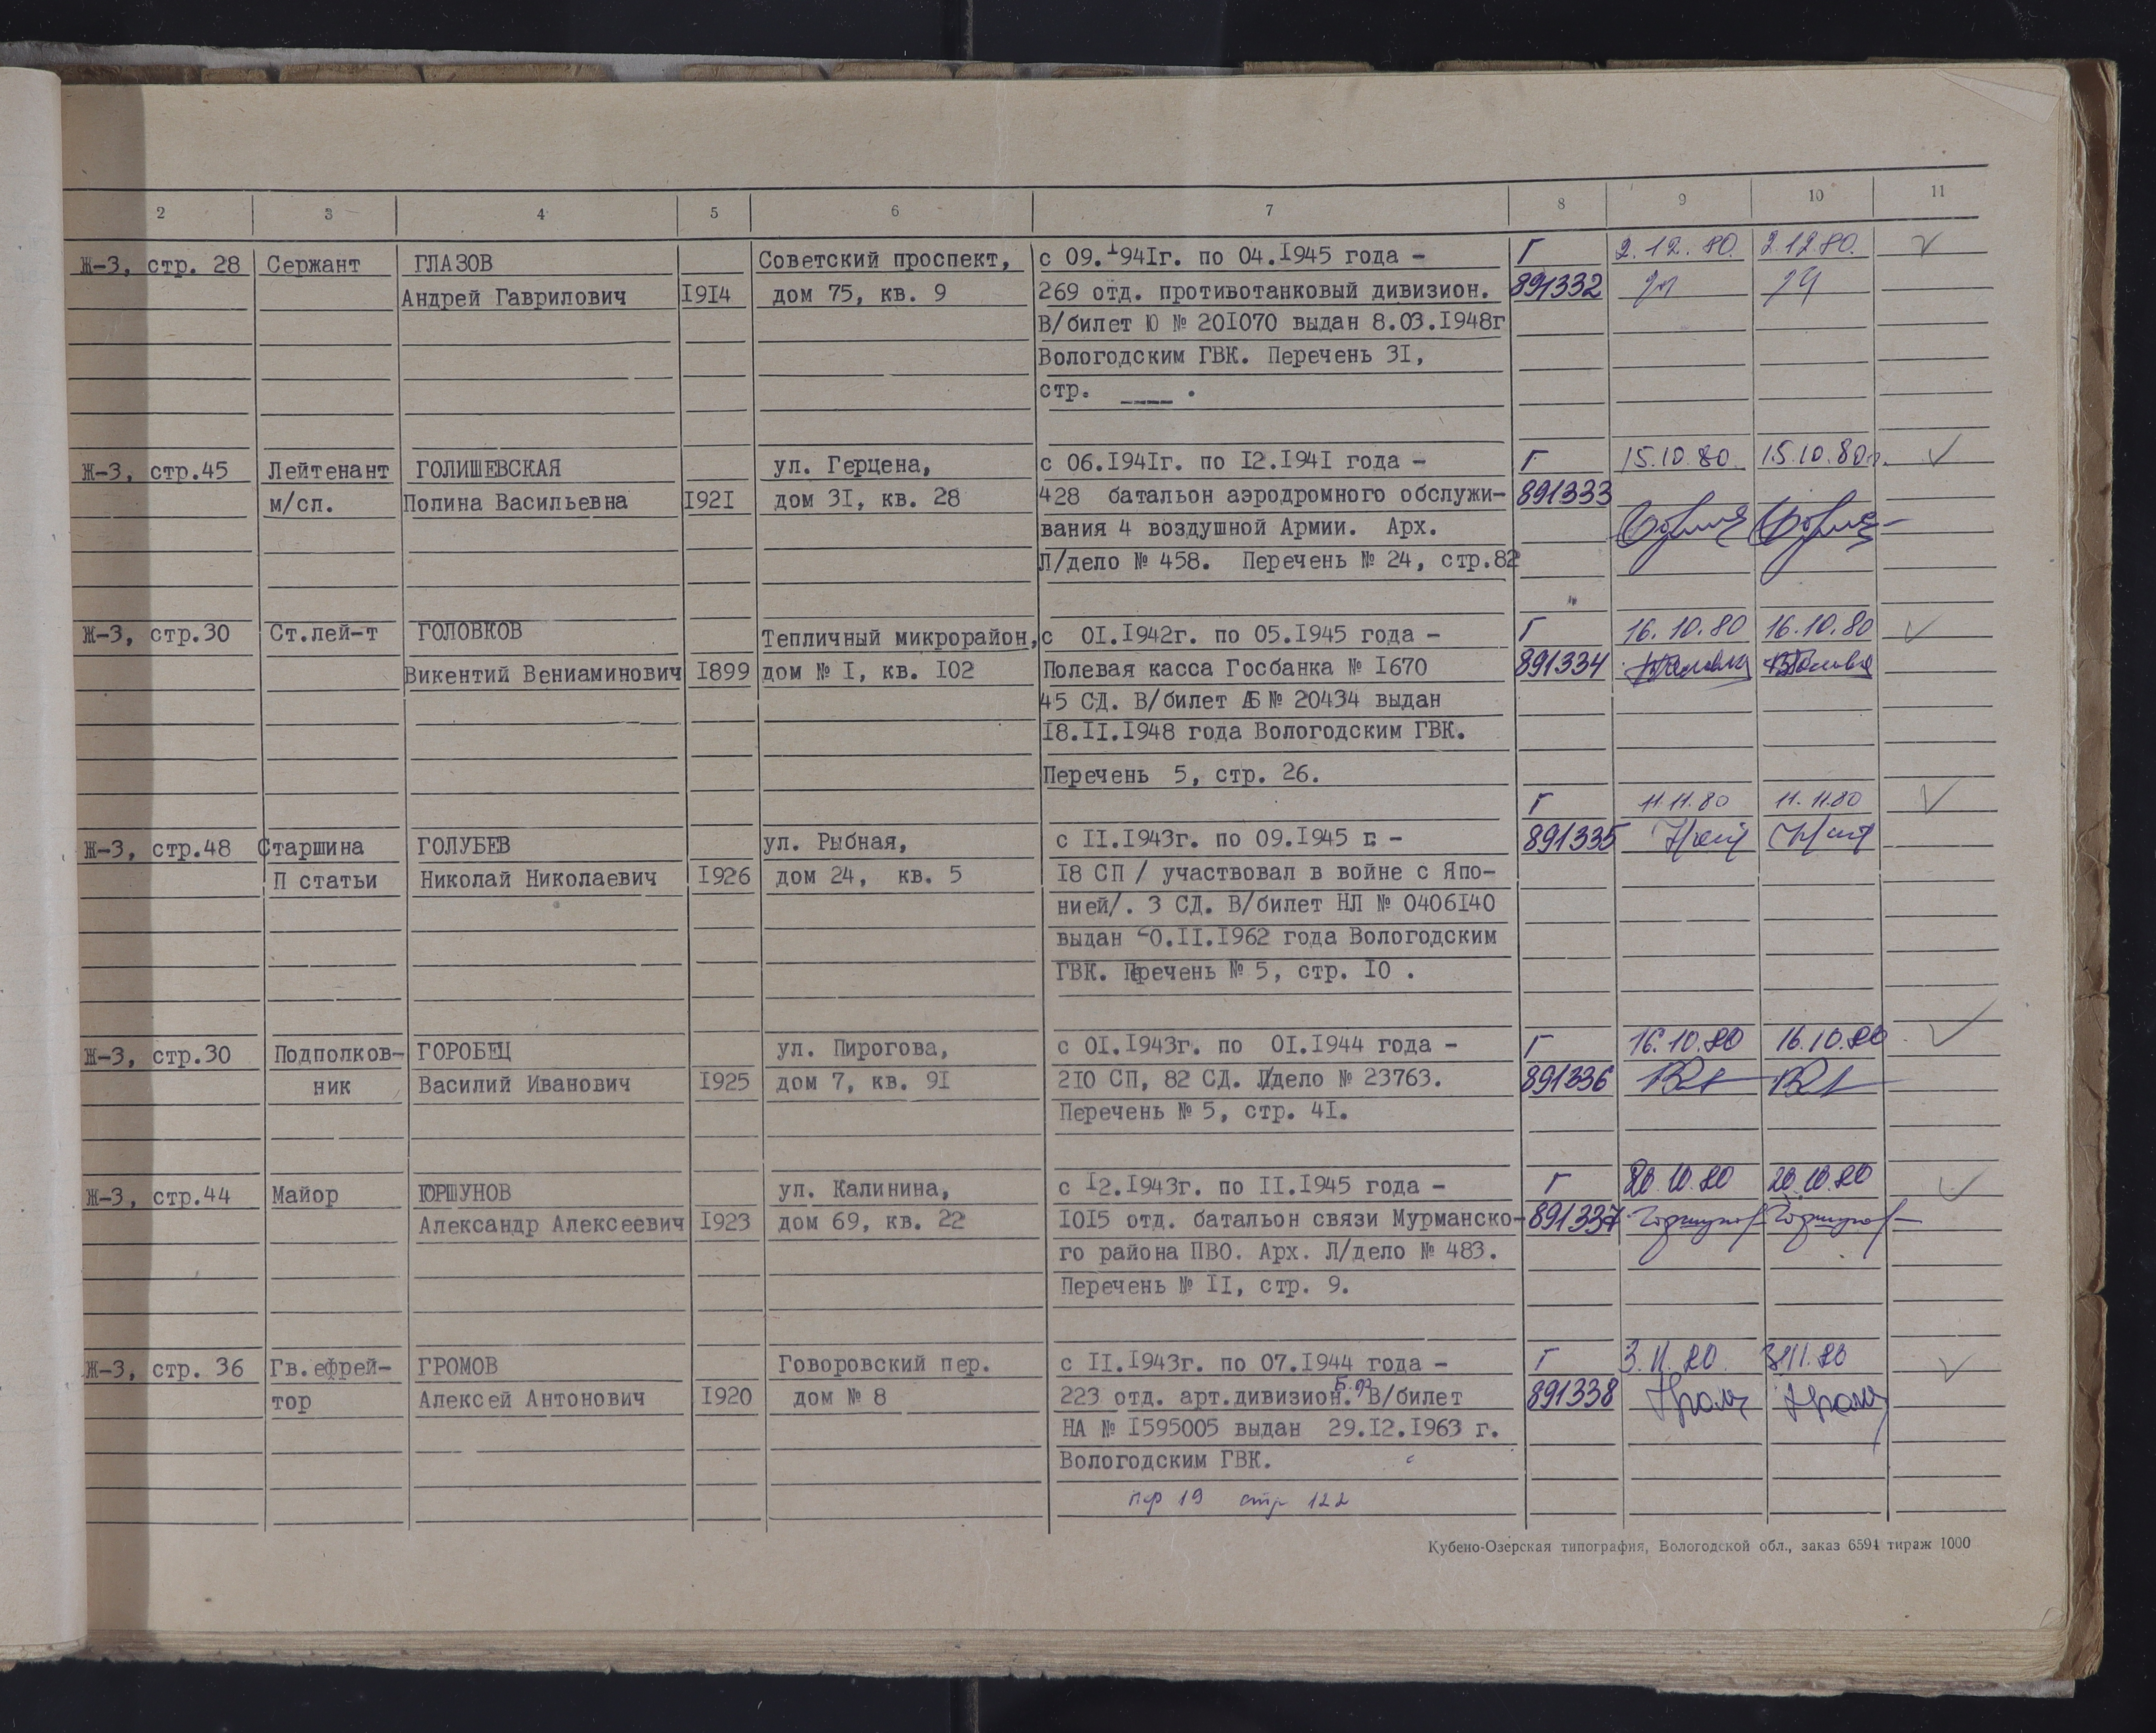 2 3 4 5 6 7 8 9 10 11
Ж-3, стр. 28 Сержант ГЛАЗОВ Советский проспект, с 09.1941г. по 04.1945 года - Г 2.12.80. 2.12.80.
Андрей Гаврилович 1914 дом 75, кв. 9 269 отд. противотанковый дивизион. 891332
В/билет Ю № 201070 выдан 8.03.1948г
Вологодским ГВК. Перечень 31,
стр. ____ .
Ж-3, стр.45 Лейтенант ГОЛИШЕВСКАЯ ул. Герцена, с 06.1941г. по 12.1941 года - Г 15.10.80. 15.10.80г.
м/сл. Полина Васильевна 1921 дом 31, кв. 28 428 батальон аэродромного обслужи- 891333
вания 4 воздушной Армии. Арх.
Л/дело № 458. Перечень № 24, стр.82
Ж-3, стр.30 Ст.лей-т ГОЛОВКОВ Тепличный микрорайон, с 01.1942г. по 05.1945 года - Г 16.10.80 16.10.80
Викентий Вениаминович 1899 дом № 1, кв. 102 Полевая касса Госбанка № 1670 891334
45 СД. В/билет АБ № 20434 выдан
18.11.1948 года Вологодским ГВК.
Перечень 5, стр. 26.
Г 11.11.80 11.11.80
Ж-3, стр.48 Старшина ГОЛУБЕВ ул. Рыбная, с 11.1943г. по 09.1945 г. - 891335
П статьи Николай Николаевич 1926 дом 24, кв. 5 18 СП / участвовал в войне с Япо-
нией/. 3 СД. В/билет НЛ № 0406140
выдан 20.11.1962 года Вологодским
ГВК. Перечень № 5, стр. 10 .
Ж-3, стр.30 Подполков- ГОРОБЕЦ ул. Пирогова, с 01.1943г. по 01.1944 года - Г 16.10.80 16.10.80
ник Василий Иванович 1925 дом 7, кв. 91 210 СП, 82 СД. Л/дело № 23763. 891336
Перечень № 5, стр. 41.
Ж-3, стр.44 Майор ГОРШУНОВ ул. Калинина, с 12.1943г. по 11.1945 года - Г 20.10.80 20.10.80
Александр Алексеевич 1923 дом 69, кв. 22 1015 отд. батальон связи Мурманско- 891337 Горшунов Горшунов
го района ПВО. Арх. Л/дело № 483.
Перечень № 11, стр. 9.
Ж-3, стр. 36 Гв.ефрей- ГРОМОВ Говоровский пер. с 11.1943г. по 07.1944 года - Г 3.11.80. 3.11.80
тор Алексей Антонович 1920 дом № 8 223 отд. арт.дивизион. В/билет 891338
НА № 1595005 выдан 29.12.1963 г.
Вологодским ГВК.
пер 19 стр 122
Кубено-Озерская типография, Вологодской обл., заказ 6594 тираж 1000